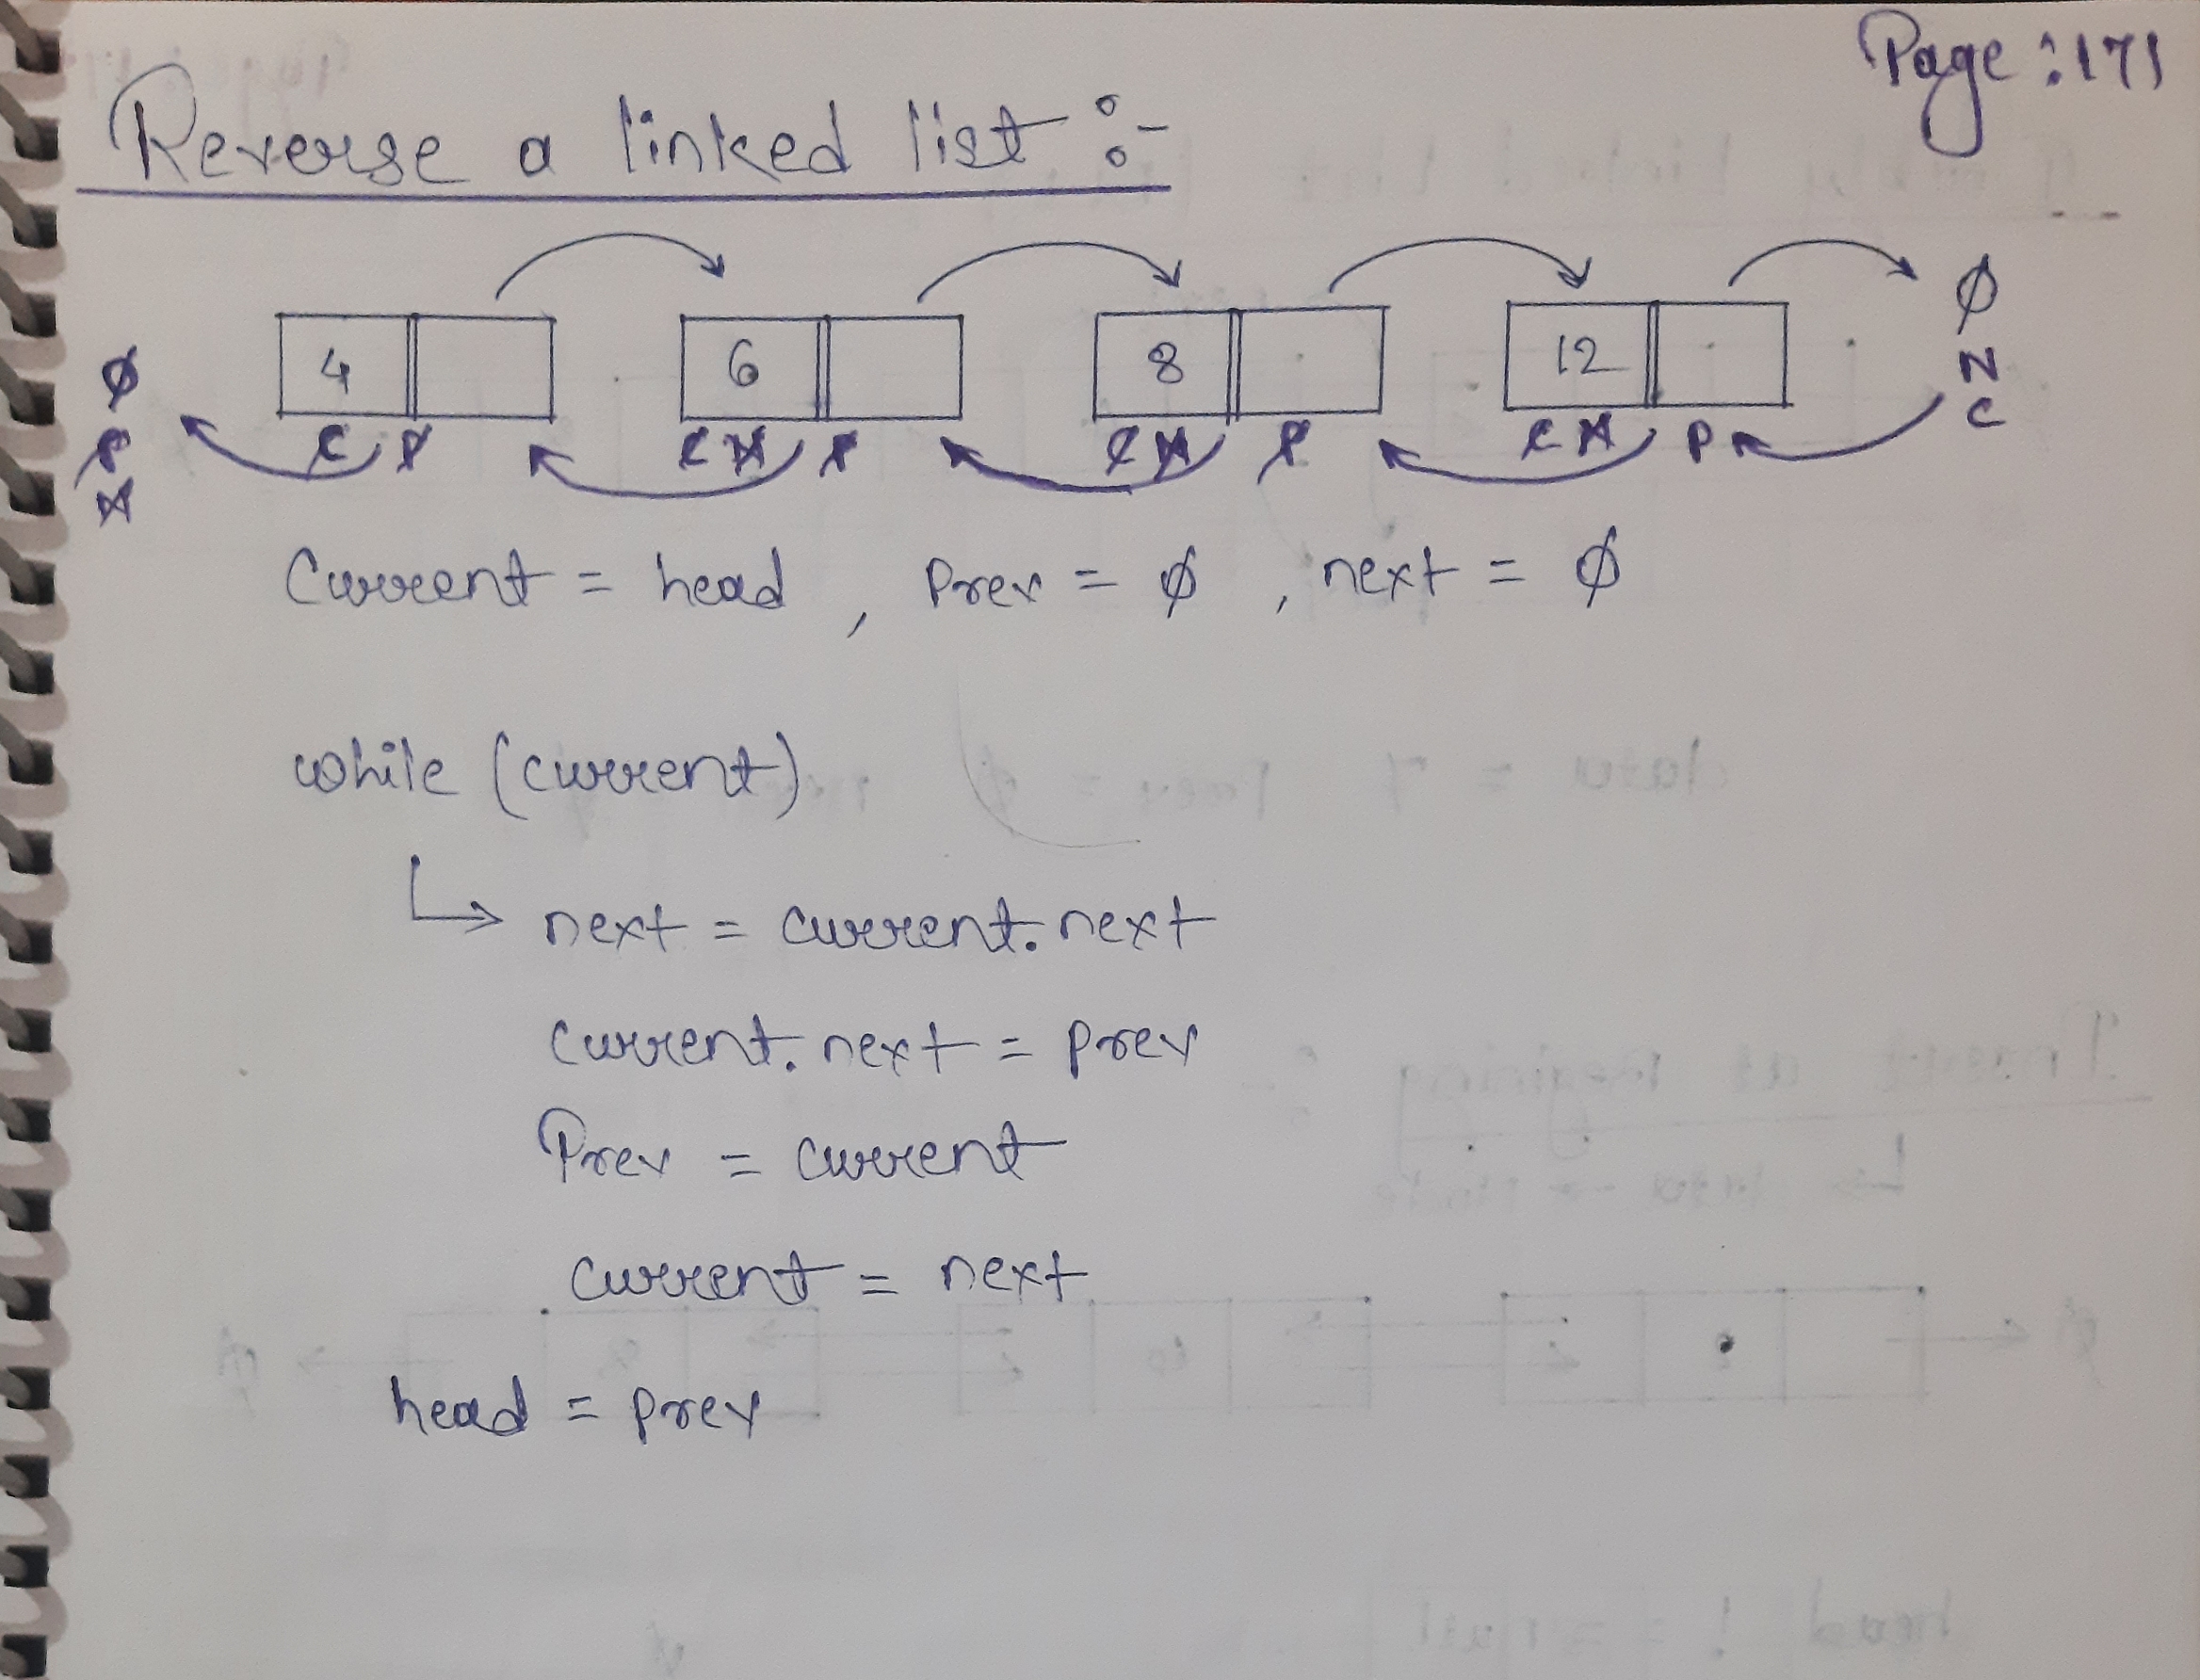 Page : 171
Reverse a linked list :-
4 6 8 12 Ø
Ø N
P C P C N P C N P C N P C
N
Current = head , Prev = Ø , next = Ø
while (current)
↳ next = current.next
current.next = prev
Prev = current
current = next
head = prev